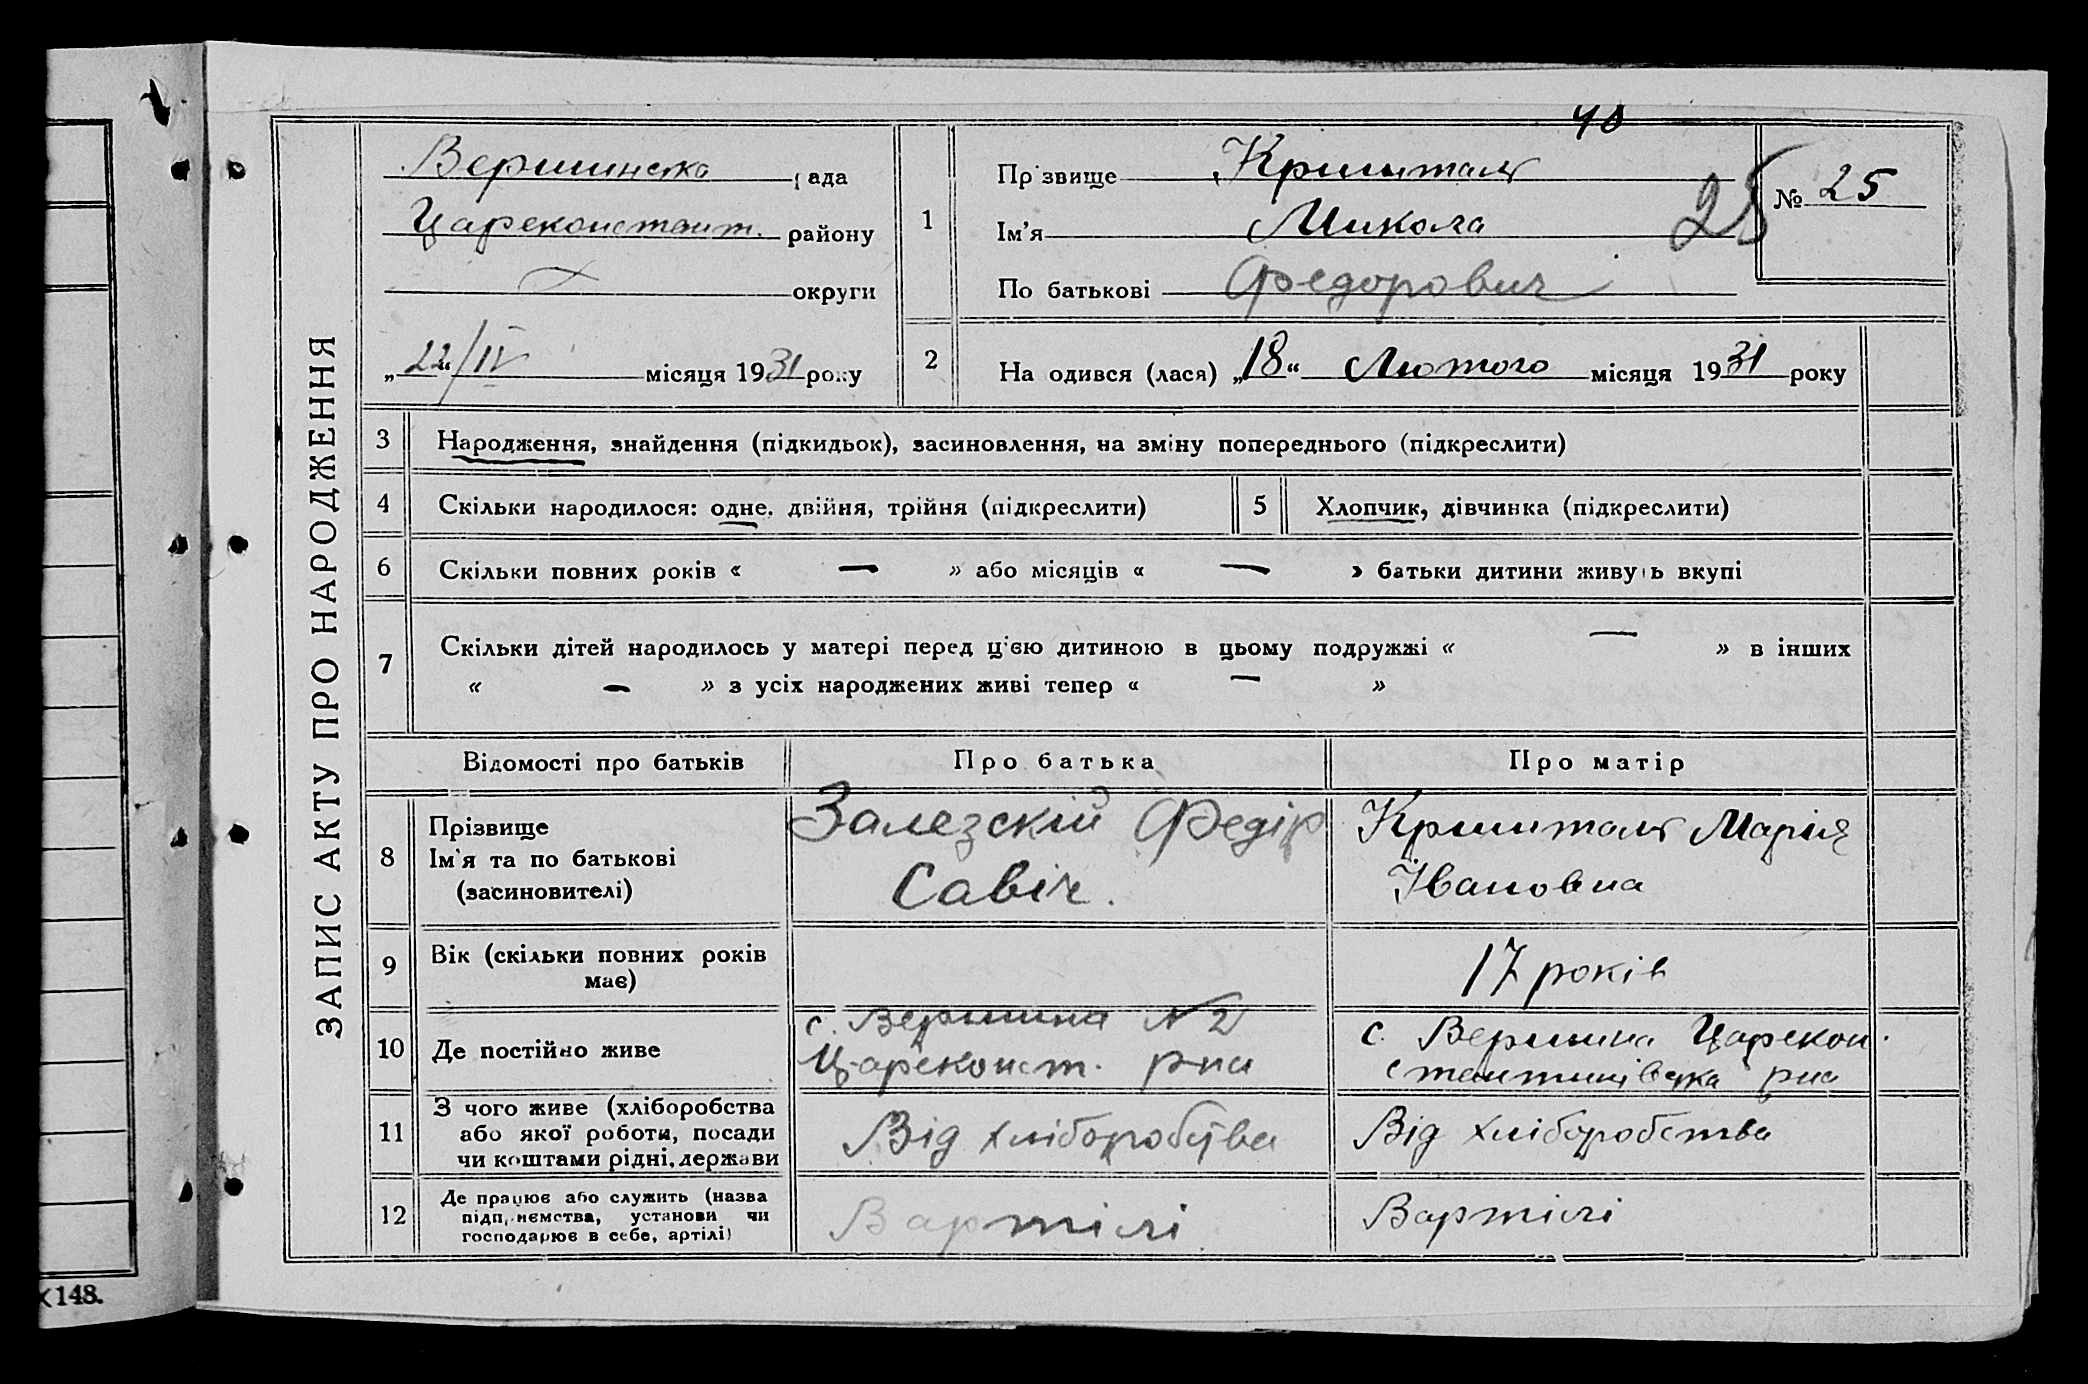 40
ЗАПИС АКТУ ПРО НАРОДЖЕННЯ
Вершинска рада
Цареконстант. району
округи
„22“/IV місяця 1931 року
1
Прізвище Кришталь
Ім’я Микола
По батькові Федорович
25
№ 25
2
На одився (лася) „18“ Лютого місяця 1931 року
3 Народження, знайдення (підкидьок), засиновлення, на зміну попереднього (підкреслити)
4 Скільки народилося: одне, двійня, трійня (підкреслити)
5 Хлопчик, дівчинка (підкреслити)
6 Скільки повних років « — » або місяців « — » батьки дитини живуть вкупі
7 Скільки дітей народилось у матері перед ц’єю дитиною в цьому подружжі « — » в інших
« — » з усіх народжених живі тепер « — »
Відомості про батьків Про батька Про матір
8 Прізвище
Ім’я та по батькові
(засиновителі)
Залезскій Федір
Савіч.
Кришталь Марія
Івановна
9 Вік (скільки повних років
має)
17 років
10 Де постійно живе
с. Вершина №2
Цареконст. рна
с. Вершина Царекон-
стантинівська рна
11 З чого живе (хліборобства
або якої роботи, посади
чи коштами рідні, держави
Від хліборобства
Від хліборобства
12 Де працює або служить (назва
підприємства, установи чи
господарює в себе, артілі)
Вартілі
Вартілі
148.